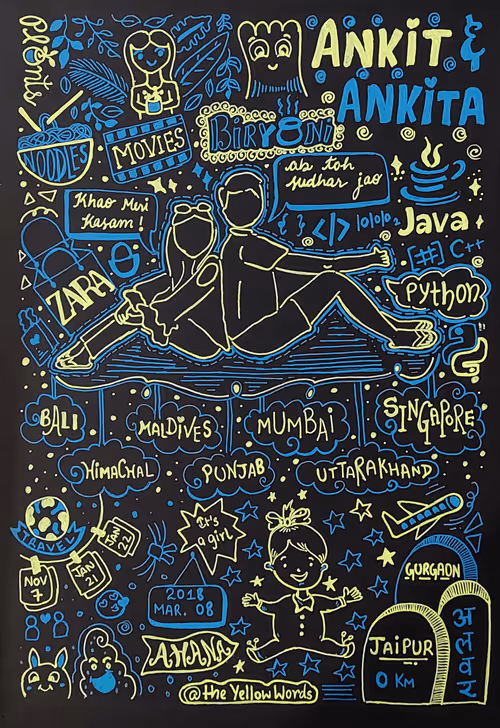 Plants
ANKIT &
ANKITA
NOODLES
MOVIES
BIRYANI
ab toh
sudhar jao
Khao Meri
Kasam!
{ } </>
Java
[#] C++
ZARA
python
BALI
MALDIVES
MUMBAI
SINGAPORE
HIMACHAL
PUNJAB
UTTARAKHAND
TRAVEL
NOV
7
JAN
21
JAN
22
It's
a girl
2018
MAR. 08
AHANA
GURGAON
JAIPUR
0 KM
@the YellowWords